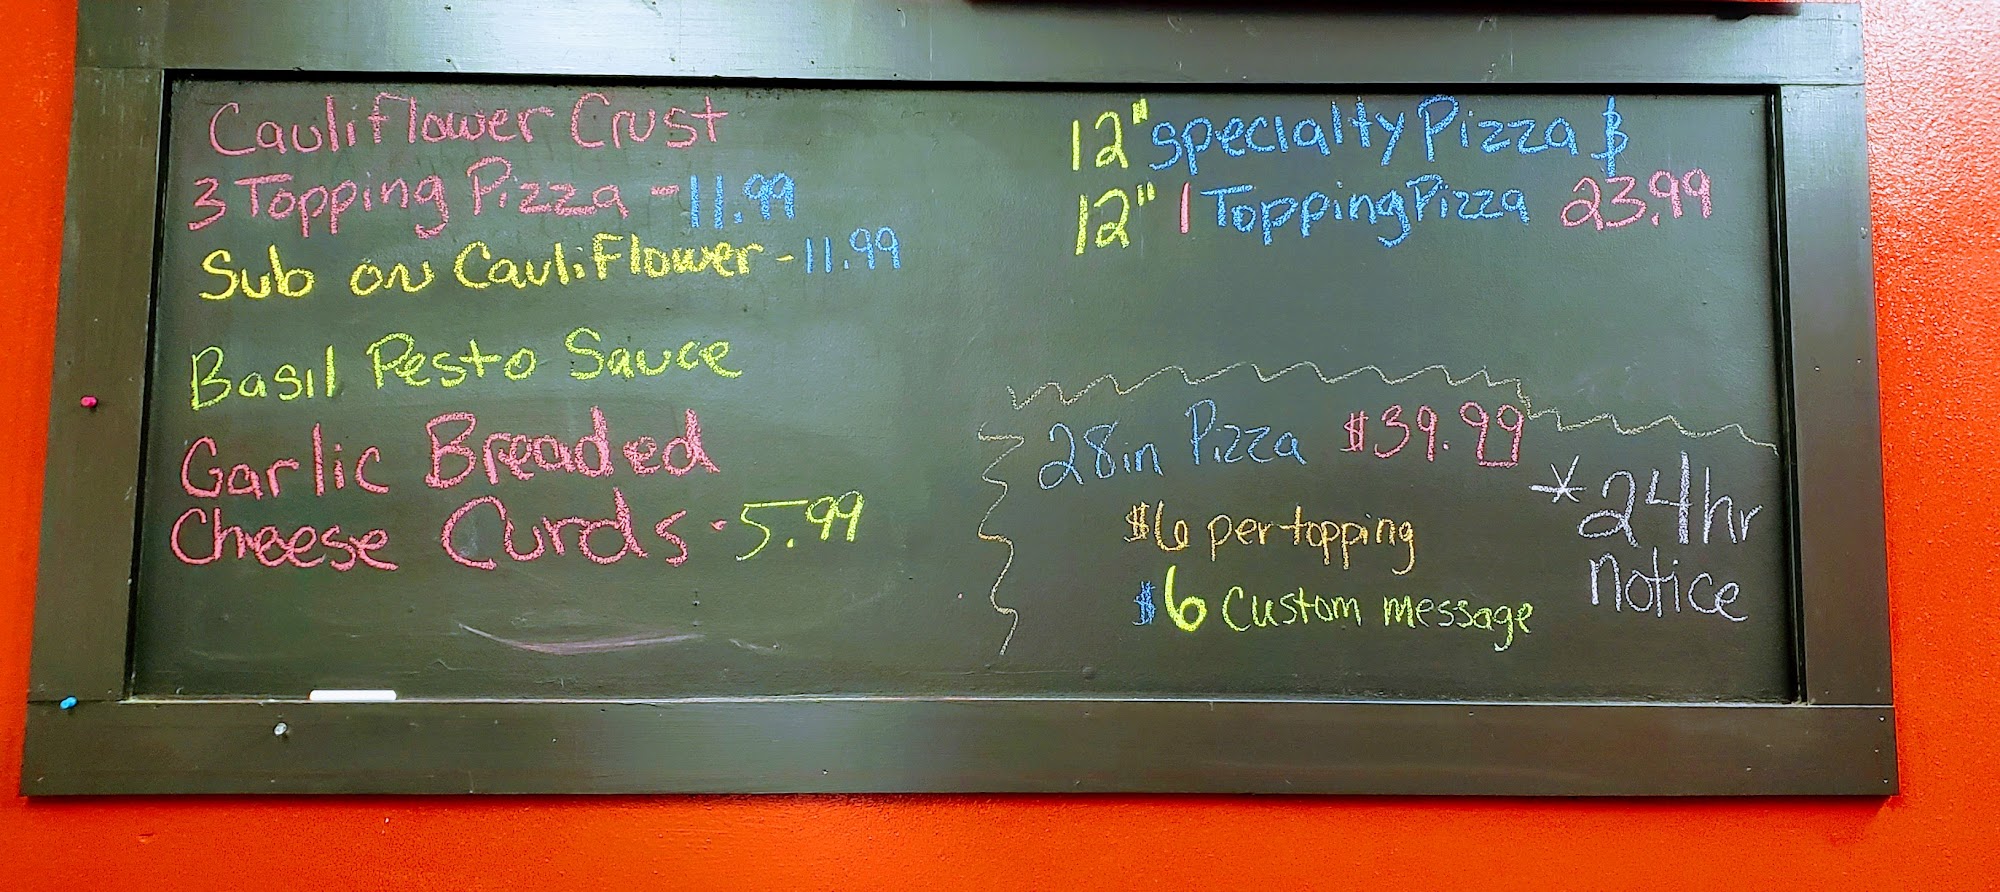 Cauliflower Crust
3 Topping Pizza - 11.99
Sub on Cauliflower - 11.99
Basil Pesto Sauce
Garlic Breaded
Cheese Curds - 5.99
12" specialty Pizza $
12" 1 Topping Pizza 23.99
28in Pizza $39.99
$6 per topping
$6 Custom message
*24hr
notice